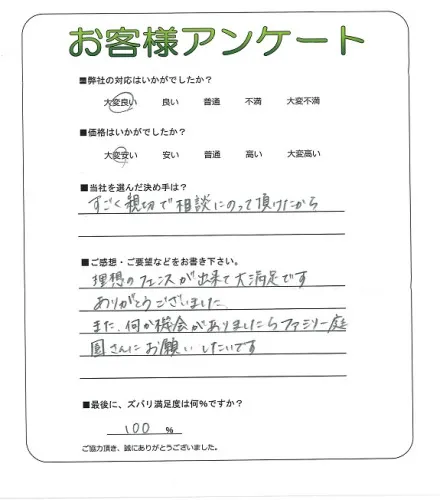 お客様アンケート
■弊社の対応はいかがでしたか?
大変良い 良い 普通 不満 大変不満
■価格はいかがでしたか?
大変安い 安い 普通 高い 大変高い
■当社を選んだ決め手は?
すごく親切で相談にのって頂けたから
■ご感想・ご要望などをお書き下さい。
理想のフェンスが出来て大満足です
ありがとうございました
また、何か機会がありましたらファミリー庭
園さんにお願いしたいです
■最後に、ズバリ満足度は何%ですか?
100 %
ご協力頂き、誠にありがとうございました。